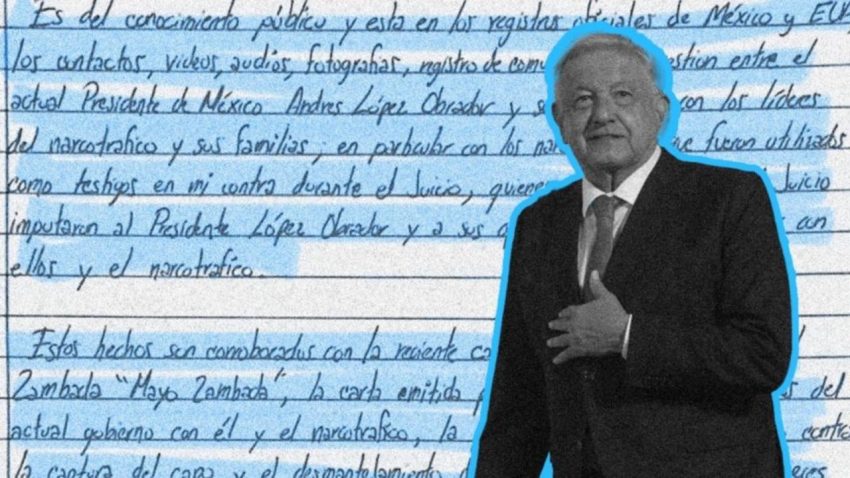 Es del conocimiento público y esta en los registros oficiales de México y EUA
los contactos, videos, audios, fotografias, registro de estion entre el
actual Presidente de México Andres López Obrador y con los líderes
del narcotrafico y sus familias; en particular con los que fueron utilizados
como testigos en mi contra durante el Juicio, Juicio
imputaron al Presidente López Obrador y a sus con
ellos y el narcotrafico.
Estos hechos son corroborados con la reciente
Zambada "Mayo Zambada", la carta emitida del
actual gobierno con él y el narcotrafico, la contra
la captura del capo y el desmantelamiento